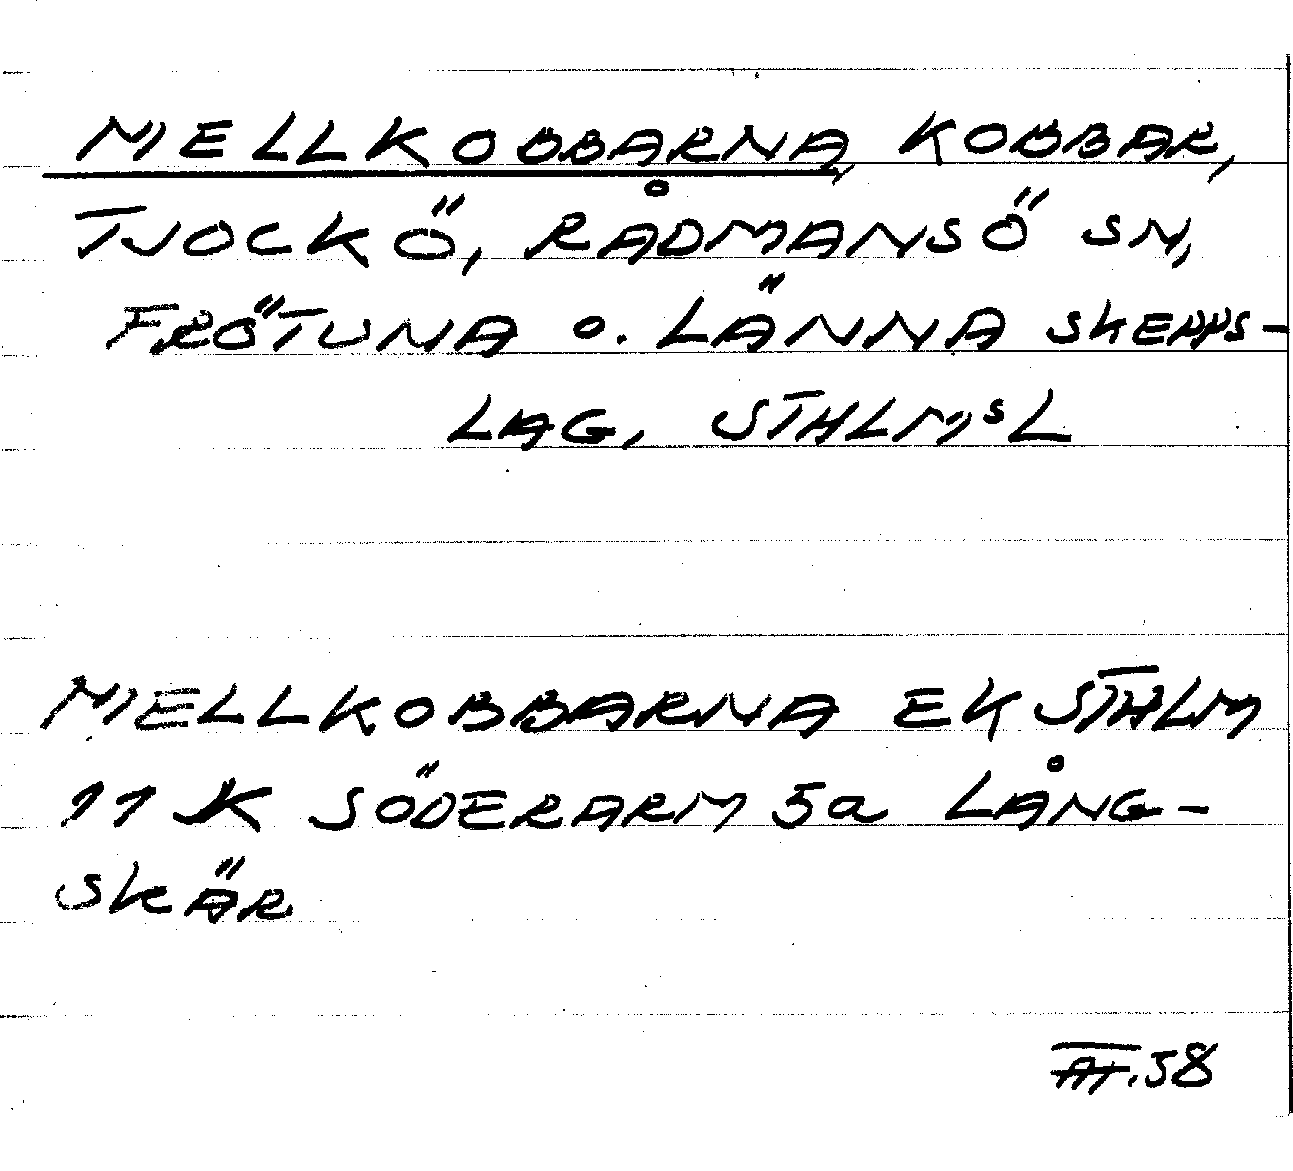 MELLKOBBARNA, KOBBAR,
TJOCKÖ, RÅDMANSÖ SN,
FRÖTUNA o. LÄNNA SKEPPS-
LAG, STHLMSL
MELLKOBBARNA EK STHLM
11 K SÖDERARM 5a LÅNG-
SKÄR
AT.58